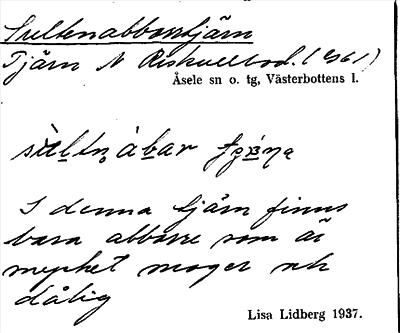 Sultenabborrtjärn
Tjärn N Riskullbod. (456 1)
Åsele sn o. tg, Västerbottens l.
I denna tjärn finns
bara abborre som är
mycket mager och
dålig
Lisa Lidberg 1937.